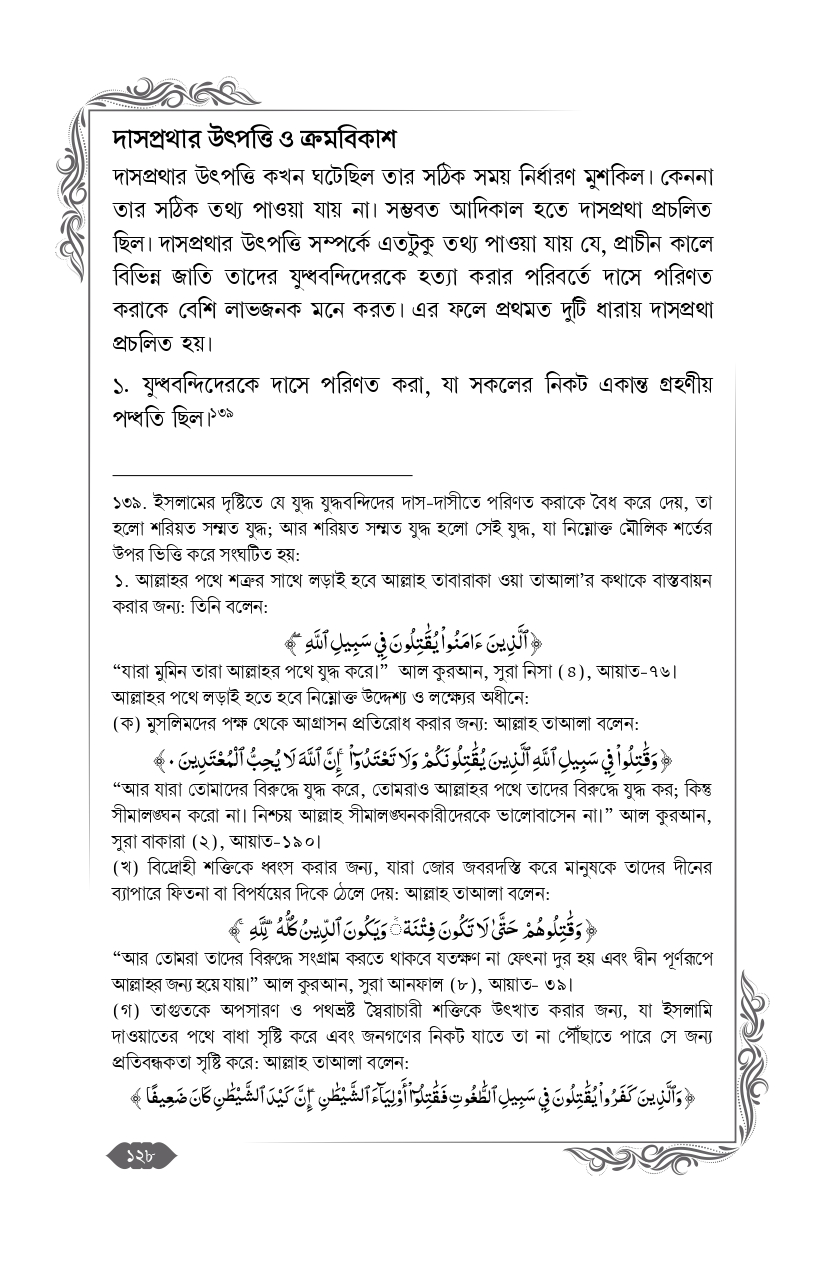 দাসপ্রথার উৎপত্তি ও ক্রমবিকাশ
দাসপ্রথার উৎপত্তি কখন ঘটেছিল তার সঠিক সময় নির্ধারণ মুশকিল। কেননা
তার সঠিক তথ্য পাওয়া যায় না। সম্ভবত আদিকাল হতে দাসপ্রথা প্রচলিত
ছিল। দাসপ্রথার উৎপত্তি সম্পর্কে এতটুকু তথ্য পাওয়া যায় যে, প্রাচীন কালে
বিভিন্ন জাতি তাদের যুদ্ধবন্দিদেরকে হত্যা করার পরিবর্তে দাসে পরিণত
করাকে বেশি লাভজনক মনে করত। এর ফলে প্রথমত দুটি ধারায় দাসপ্রথা
প্রচলিত হয়।
১. যুদ্ধবন্দিদেরকে দাসে পরিণত করা, যা সকলের নিকট একান্ত গ্রহণীয়
পদ্ধতি ছিল।১৩৯
১৩৯. ইসলামের দৃষ্টিতে যে যুদ্ধ যুদ্ধবন্দিদের দাস-দাসীতে পরিণত করাকে বৈধ করে দেয়, তা
হলো শরিয়ত সম্মত যুদ্ধ; আর শরিয়ত সম্মত যুদ্ধ হলো সেই যুদ্ধ, যা নিম্নোক্ত মৌলিক শর্তের
উপর ভিত্তি করে সংঘটিত হয়:
১. আল্লাহর পথে শত্রুর সাথে লড়াই হবে আল্লাহ তাবারাকা ওয়া তাআলা’র কথাকে বাস্তবায়ন
করার জন্য: তিনি বলেন:
﴿ ٱلَّذِينَ ءَامَنُواْ يُقَٰتِلُونَ فِي سَبِيلِ ٱللَّهِۖ ﴾
“যারা মুমিন তারা আল্লাহর পথে যুদ্ধ করে।” আল কুরআন, সুরা নিসা (৪), আয়াত-৭৬।
আল্লাহর পথে লড়াই হতে হবে নিম্নোক্ত উদ্দেশ্য ও লক্ষ্যের অধীনে:
(ক) মুসলিমদের পক্ষ থেকে আগ্রাসন প্রতিরোধ করার জন্য: আল্লাহ তাআলা বলেন:
﴿ وَقَٰتِلُواْ فِي سَبِيلِ ٱللَّهِ ٱلَّذِينَ يُقَٰتِلُونَكُمۡ وَلَا تَعۡتَدُوٓاْۚ إِنَّ ٱللَّهَ لَا يُحِبُّ ٱلۡمُعۡتَدِينَ ٠ ﴾
“আর যারা তোমাদের বিরুদ্ধে যুদ্ধ করে, তোমরাও আল্লাহর পথে তাদের বিরুদ্ধে যুদ্ধ কর; কিন্তু
সীমালঙ্ঘন করো না। নিশ্চয় আল্লাহ সীমালঙ্ঘনকারীদেরকে ভালোবাসেন না।” আল কুরআন,
সুরা বাকারা (২), আয়াত-১৯০।
(খ) বিদ্রোহী শক্তিকে ধ্বংস করার জন্য, যারা জোর জবরদস্তি করে মানুষকে তাদের দীনের
ব্যাপারে ফিতনা বা বিপর্যয়ের দিকে ঠেলে দেয়: আল্লাহ তাআলা বলেন:
﴿ وَقَٰتِلُوهُمۡ حَتَّىٰ لَا تَكُونَ فِتۡنَةٞ وَيَكُونَ ٱلدِّينُ كُلُّهُۥ لِلَّهِۚ ﴾
“আর তোমরা তাদের বিরুদ্ধে সংগ্রাম করতে থাকবে যতক্ষণ না ফেৎনা দুর হয় এবং দ্বীন পূর্ণরূপে
আল্লাহর জন্য হয়ে যায়।” আল কুরআন, সুরা আনফাল (৮), আয়াত- ৩৯।
(গ) তাগুতকে অপসারণ ও পথভ্রষ্ট স্বৈরাচারী শক্তিকে উৎখাত করার জন্য, যা ইসলামি
দাওয়াতের পথে বাধা সৃষ্টি করে এবং জনগণের নিকট যাতে তা না পৌঁছাতে পারে সে জন্য
প্রতিবন্ধকতা সৃষ্টি করে: আল্লাহ তাআলা বলেন:
﴿ وَٱلَّذِينَ كَفَرُواْ يُقَٰتِلُونَ فِي سَبِيلِ ٱلطَّٰغُوتِ فَقَٰتِلُوٓاْ أَوۡلِيَآءَ ٱلشَّيۡطَٰنِۖ إِنَّ كَيۡدَ ٱلشَّيۡطَٰنِ كَانَ ضَعِيفًا ﴾
১২৮